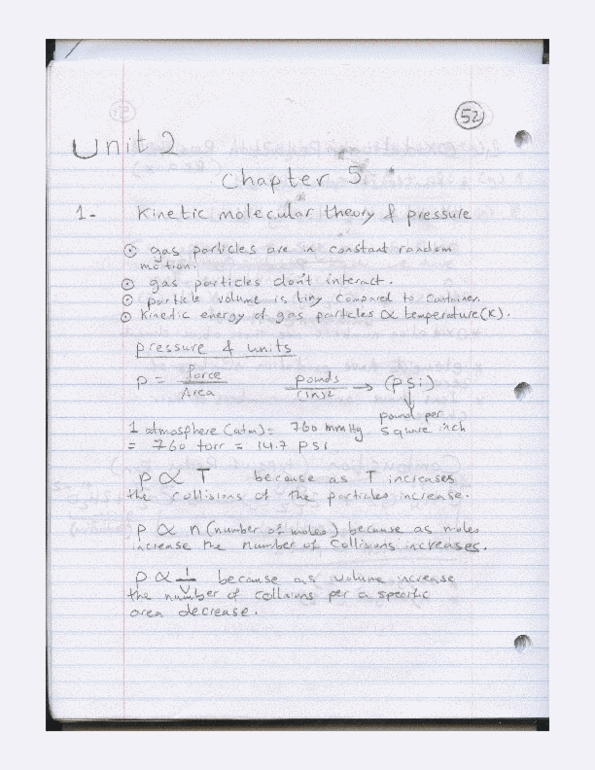 52
Unit 2
Chapter 5
1- Kinetic molecular theory & pressure
⊙ gas particles are in constant random
motion.
⊙ gas particles don't interact.
⊙ particle volume is tiny compared to container.
⊙ Kinetic energy of gas particles ∝ temperature(K).
pressure & units
P = force/Area pounds/(in)2 → (psi)
pound per
1 atmosphere (atm) = 760 mmHg square inch
= 760 torr = 14.7 psi
P ∝ T because as T increases
the collisions of the particles increase.
P ∝ n (number of moles) because as moles
increase the number of collisions increases.
P ∝ 1/V because as volume increase
the number of collisions per a specific
area decrease.